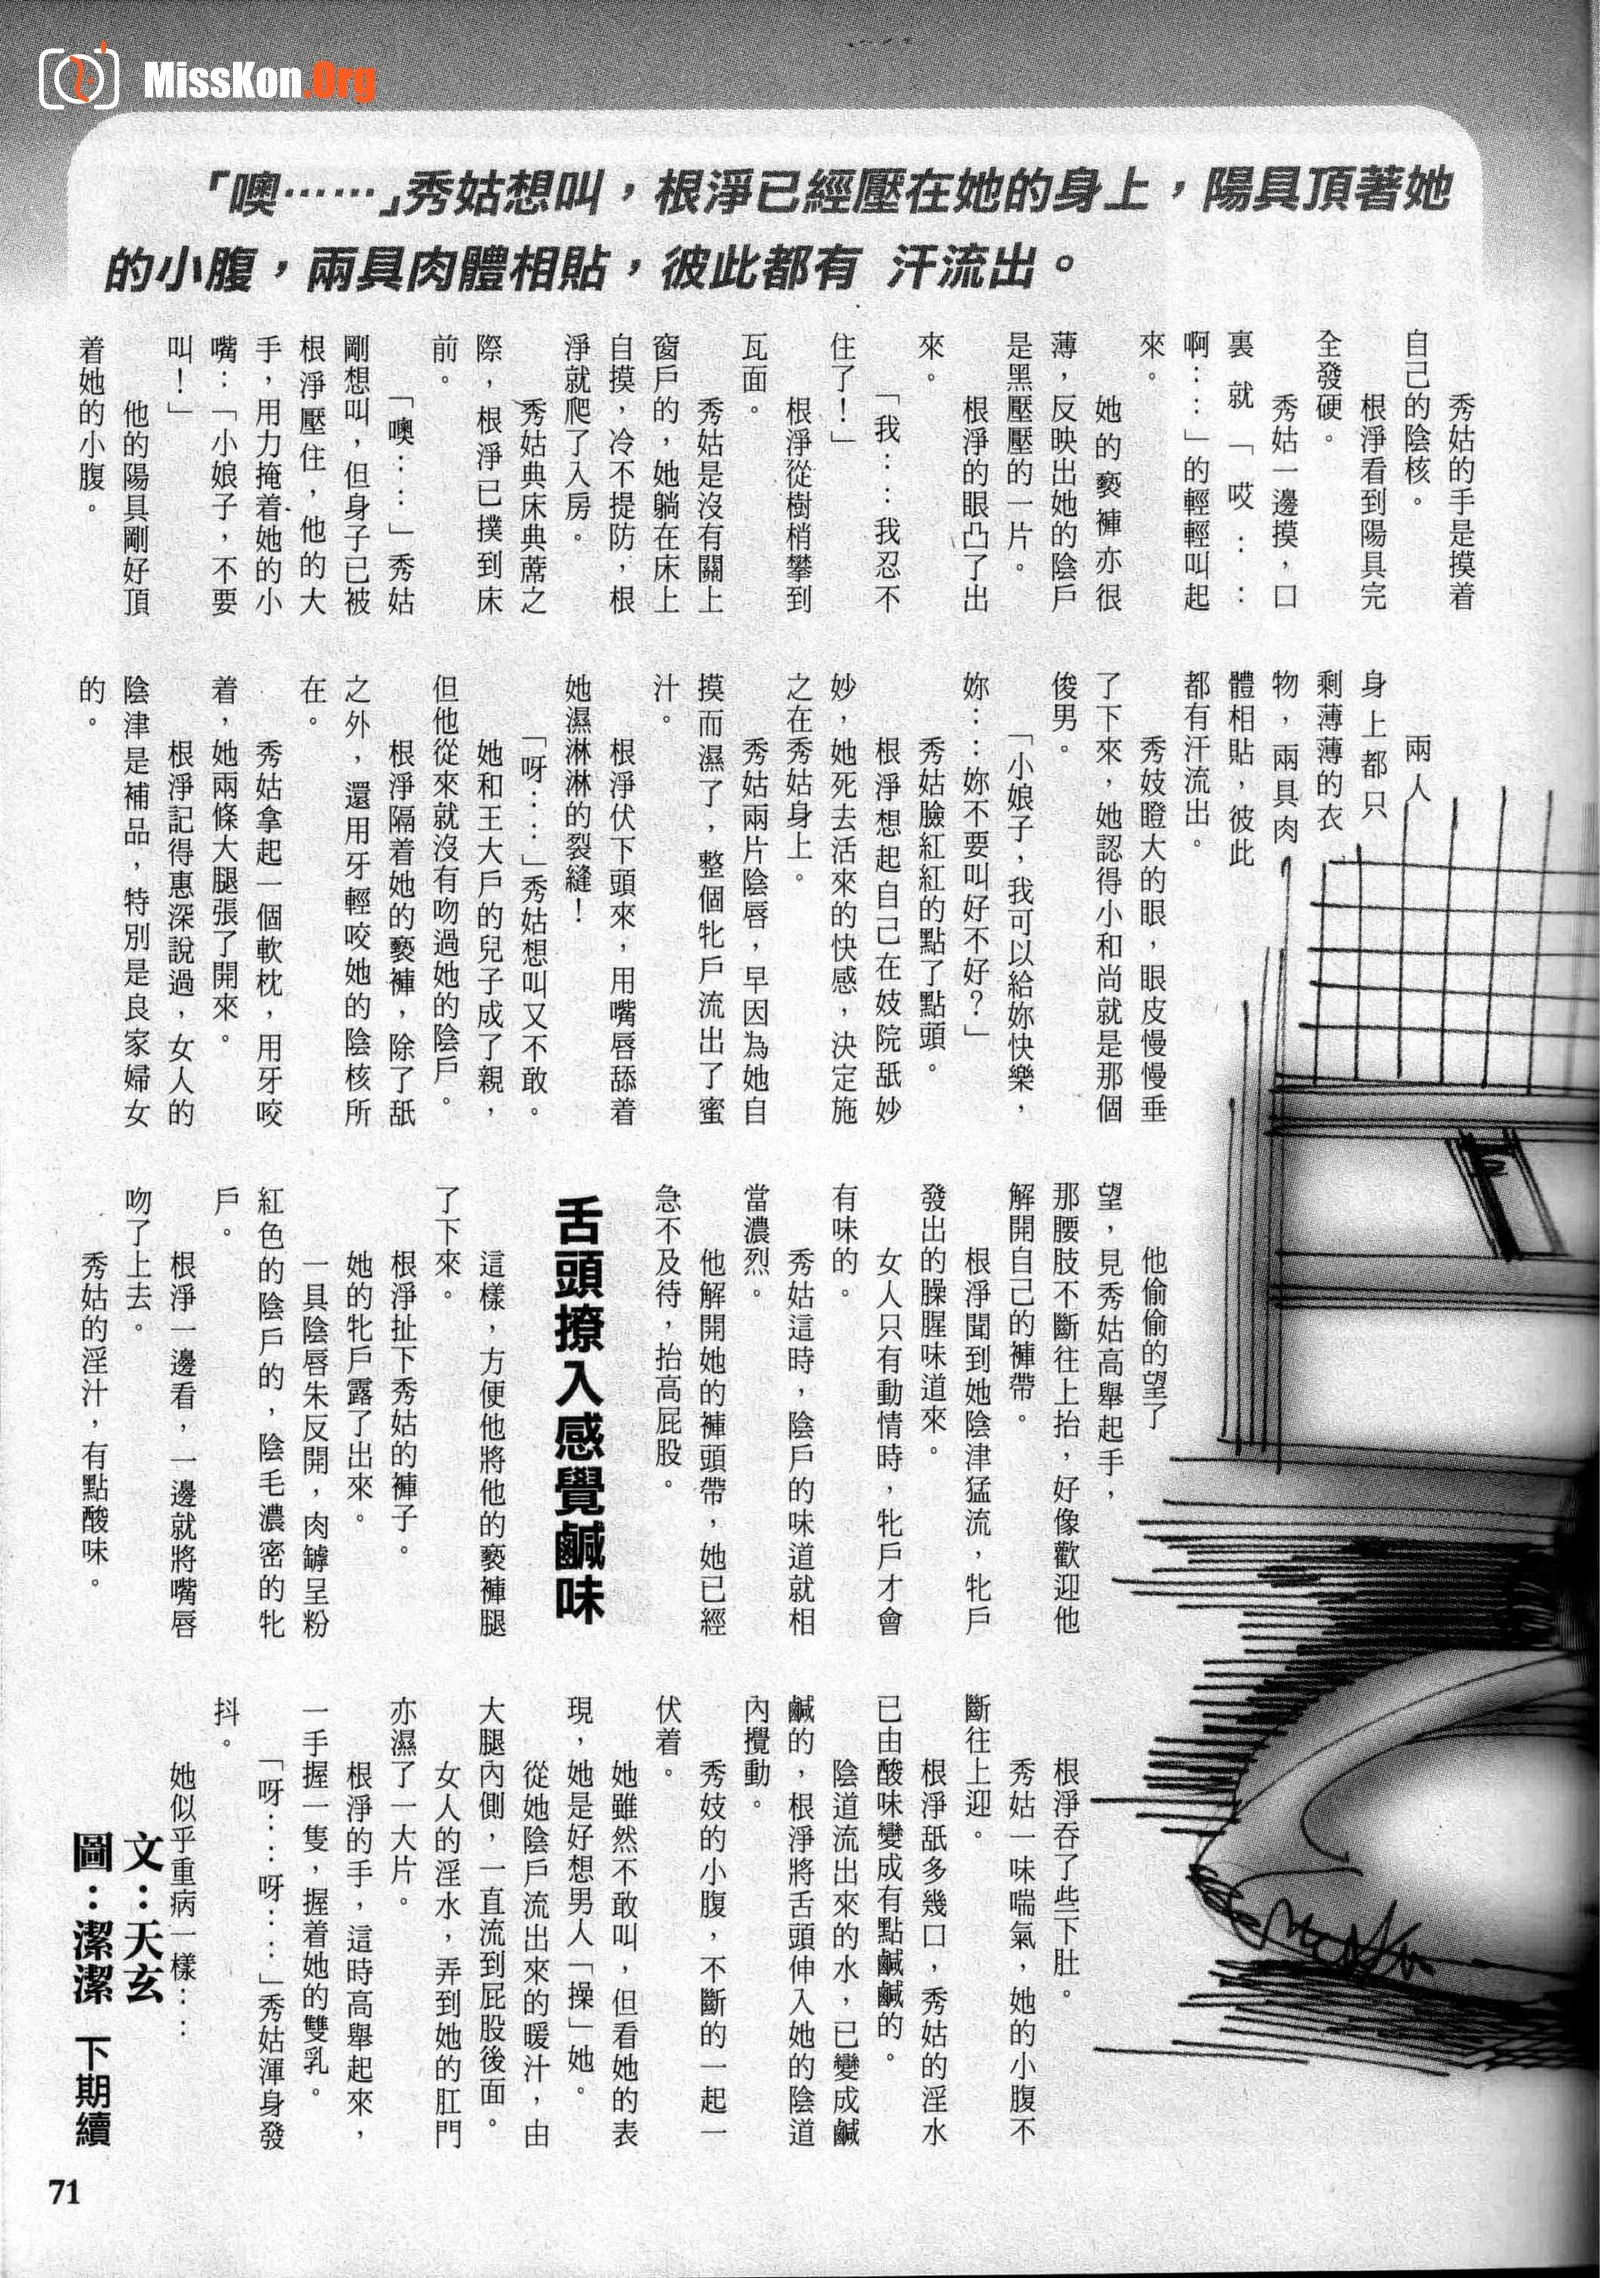 MissKon.Org
「噢……」秀姑想叫，根淨已經壓在她的身上，陽具頂著她
的小腹，兩具肉體相貼，彼此都有 汗流出。
秀姑的手是摸着
自己的陰核。
根淨看到陽具完
全發硬。
秀姑一邊摸，口
裏就「哎：：
啊：：」的輕輕叫起
來。
她的褻褲亦很
薄，反映出她的陰戶
是黑壓壓的一片。
根淨的眼凸了出
來。
「我：：我忍不
住了！」
根淨從樹梢攀到
瓦面。
秀姑是沒有關上
窗戶的，她躺在床上
自摸，冷不提防，根
淨就爬了入房。
秀姑典床典蓆之
際，根淨已撲到床
前。
「噢：：」秀姑
剛想叫，但身子已被
根淨壓住，他的大
手，用力掩着她的小
嘴：「小娘子，不要
叫！」
他的陽具剛好頂
着她的小腹。
兩人
身上都只
剩薄薄的衣
物，兩具肉
體相貼，彼此
都有汗流出。
秀妓瞪大的眼，眼皮慢慢垂
了下來，她認得小和尚就是那個
俊男。
「小娘子，我可以給妳快樂，
妳：：妳不要叫好不好？」
秀姑臉紅紅的點了點頭。
根淨想起自己在妓院舐妙
妙，她死去活來的快感，決定施
之在秀姑身上。
秀姑兩片陰唇，早因為她自
摸而濕了，整個牝戶流出了蜜
汁。
根淨伏下頭來，用嘴唇舔着
她濕淋淋的裂縫！
「呀：：」秀姑想叫又不敢。
她和王大戶的兒子成了親，
但他從來就沒有吻過她的陰戶。
根淨隔着她的褻褲，除了舐
之外，還用牙輕咬她的陰核所
在。
秀姑拿起一個軟枕，用牙咬
着，她兩條大腿張了開來。
根淨記得惠深說過，女人的
陰津是補品，特別是良家婦女
的。
他偷偷的望了
望，見秀姑高舉起手，
那腰肢不斷往上抬，好像歡迎他
解開自己的褲帶。
根淨聞到她陰津猛流，牝戶
發出的臊腥味道來。
女人只有動情時，牝戶才會
有味的。
秀姑這時，陰戶的味道就相
當濃烈。
他解開她的褲頭帶，她已經
急不及待，抬高屁股。
舌頭撩入感覺鹹味
這樣，方便他將他的褻褲腿
了下來。
根淨扯下秀姑的褲子。
她的牝戶露了出來。
一具陰唇朱反開，肉罅呈粉
紅色的陰戶的，陰毛濃密的牝
戶。
根淨一邊看，一邊就將嘴唇
吻了上去。
秀姑的淫汁，有點酸味。
根淨吞了些下肚。
秀姑一味喘氣，她的小腹不
斷往上迎。
根淨舐多幾口，秀姑的淫水
已由酸味變成有點鹹鹹的。
陰道流出來的水，已變成鹹
鹹的，根淨將舌頭伸入她的陰道
內攪動。
秀妓的小腹，不斷的一起一
伏着。
她雖然不敢叫，但看她的表
現，她是好想男人「操」她。
從她陰戶流出來的暖汁，由
大腿內側，一直流到屁股後面。
女人的淫水，弄到她的肛門
亦濕了一大片。
根淨的手，這時高舉起來，
一手握一隻，握着她的雙乳。
「呀：：呀：：」秀姑渾身發
抖。
她似乎重病一樣：：
文：天玄
圖：潔潔 下期續
71